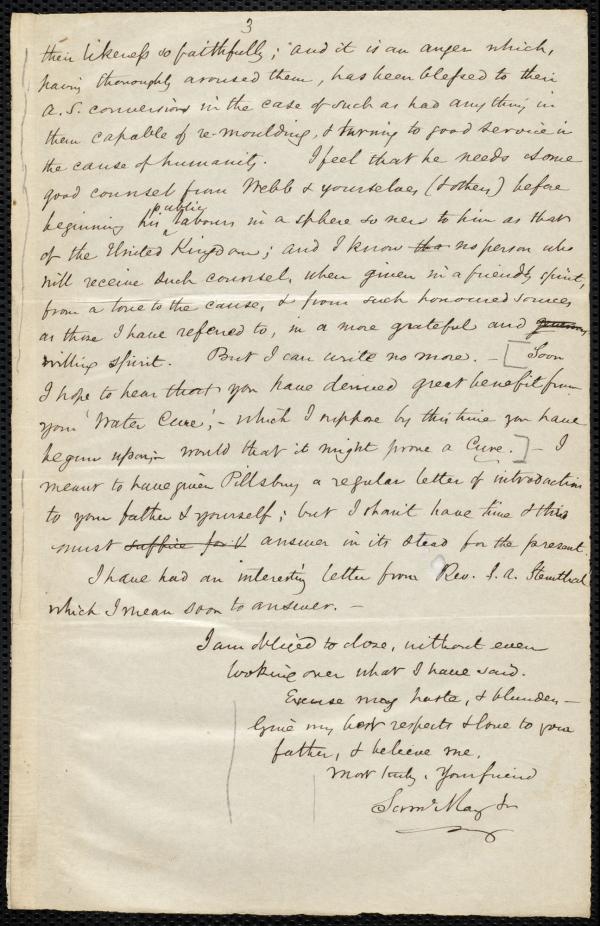 3
their likeness so faithfully; and it is an anger which,
having thoroughly aroused them, has been blessed to their
A.S. conversion in the case of such as had anything in
them capable of re-moulding, & turning to good service in
the cause of humanity. I feel that he needs some
good counsel from Webb & yourselves (& others) before
beginning his public labours in a sphere so new to him as that
of the United Kingdom; and I know tha no person who
will receive such counsel, when given in a friendly spirit,
from a love to the cause, & from such honoured sources
as those I have referred to, in a more grateful and
willing spirit. But I can write no more. – [Soon
I hope to hear that you have derived great benefit from
your 'Water Cure', – which I suppose by this time you have
begun upon; – would that it might prove a Cure.] – I
meant to have given Pillsbury a regular letter of introduction
to your father & yourself; but I shan't have time & this
must suffice for it answer in its stead for the present.
I have had an interesting letter from Rev. S. A. Steinthal
which I mean soon to answer. –
I am obliged to close, without even
looking over what I have said.
Excuse my haste, & blunders –
Give my best respects & love to your
father, & believe me,
Most truly, Your friend
Saml May Jr